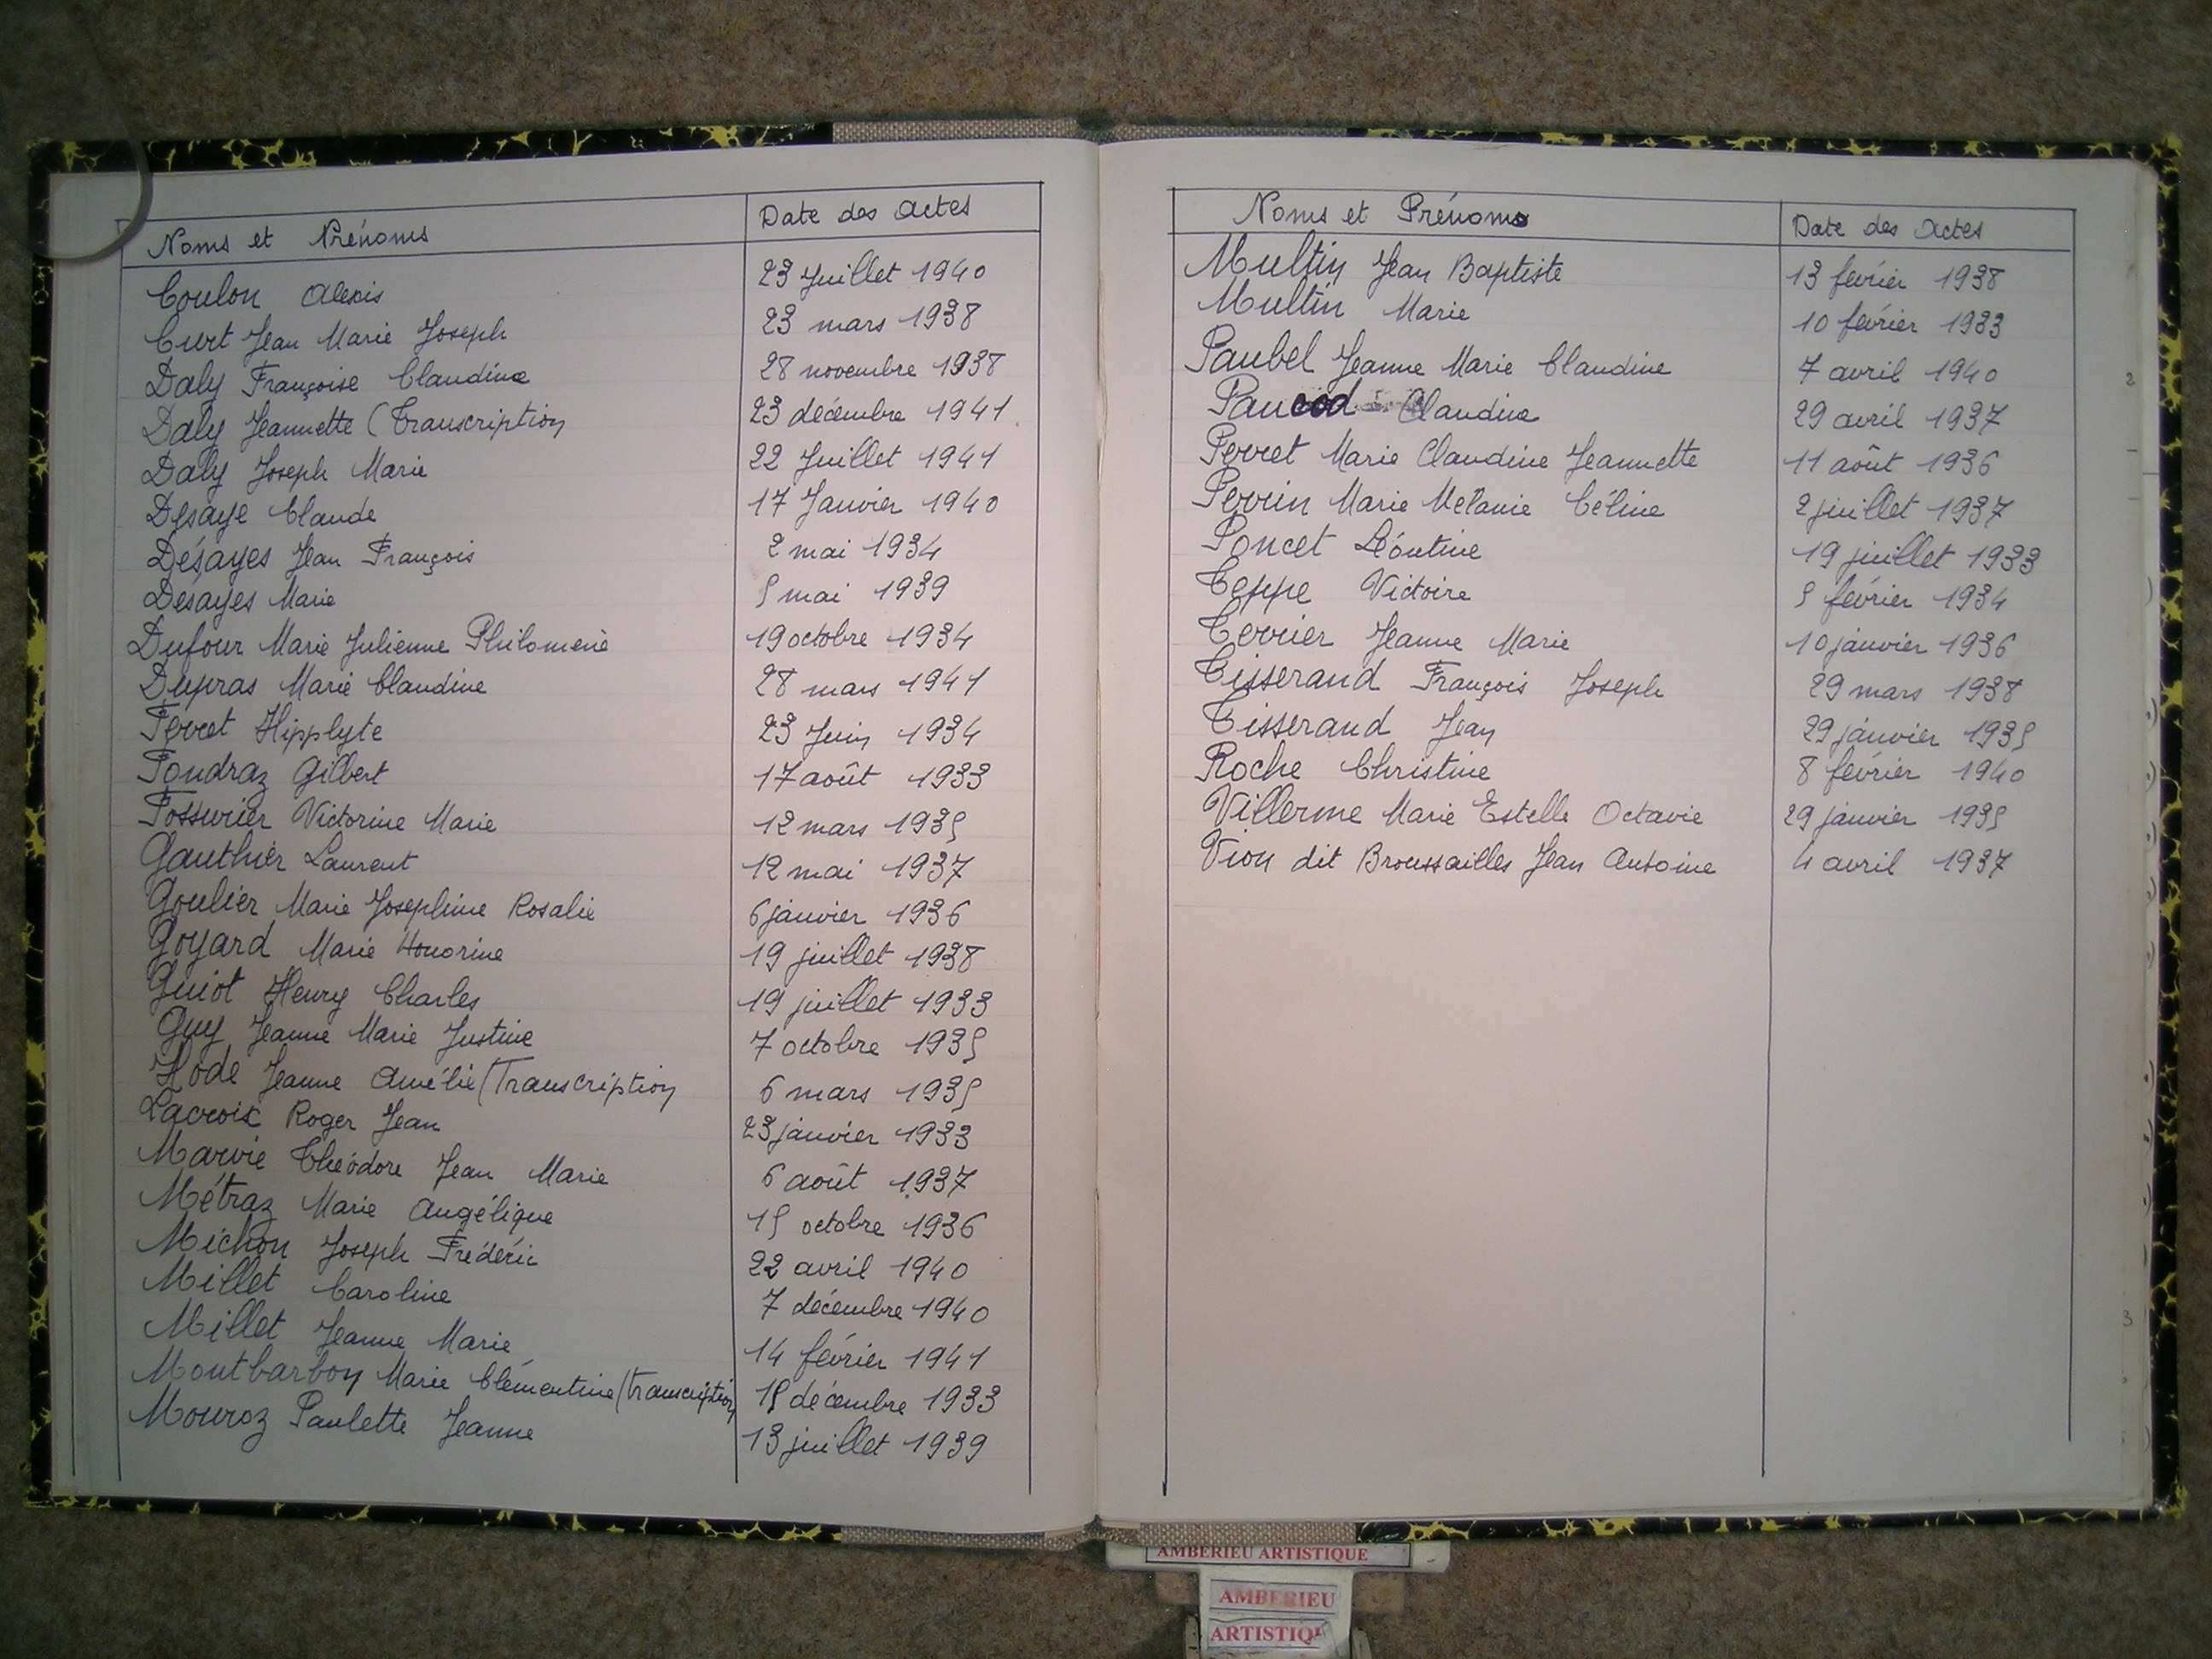 Noms et Prénoms Date des Actes
Coulon Alexis 23 Juillet 1940
Curt Jean Marie Joseph 23 mars 1938
Daly Françoise Claudine 28 novembre 1938
Daly Jeannette (Transcription 23 décembre 1941
Daly Joseph Marie 22 Juillet 1941
Desaye Claude 17 Janvier 1940
Désayes Jean François 2 mai 1934
Désayes Marie 5 mai 1939
Dufour Marie Julienne Philomène 19 octobre 1934
Dupras Marie Claudine 28 mars 1941
Ferret Hipplyte 23 Juin 1934
Fondraz Gilbert 17 août 1933
Fossurier Victorine Marie 12 mars 1935
Gauthier Laurent 12 mai 1937
Goulier Marie Josephine Rosalie 6 janvier 1936
Goyard Marie Honorine 19 juillet 1938
Guiot Henry Charles 19 juillet 1933
Guy Jeanne Marie Justine 7 octobre 1935
Hode Jeanne Amélie (Transcription 6 mars 1935
Lacroix Roger Jean 23 janvier 1933
Marvie Théodore Jean Marie 6 août 1937
Métraz Marie Angélique 15 octobre 1936
Michon Joseph Frédéric 22 avril 1940
Millet Caroline 7 décembre 1940
Millet Jeanne Marie 14 février 1941
Montbarbon Marie Clémentine (transcription 15 décembre 1933
Mouroz Paulette Jeanne 13 juillet 1939
Noms et Prénoms Date des Actes
Multin Jean Baptiste 13 février 1938
Multin Marie 10 février 1933
Paubel Jeanne Marie Claudine 7 avril 1940
Paucod Claudine 29 avril 1937
Perret Marie Claudine Jeannette 11 août 1936
Perrin Marie Mélanie Céline 2 juillet 1937
Poncet Léontine 19 juillet 1933
Teppe Victoire 5 février 1934
Terrier Jeanne Marie 10 janvier 1936
Tisserand François Joseph 29 mars 1938
Tisserand Jean 29 janvier 1935
Roche Christine 8 février 1940
Villerme Marie Estelle Octavie 29 janvier 1935
Vion dit Broussailles Jean Antoine 4 avril 1937
AMBERIEU ARTISTIQUE
AMBERIEU